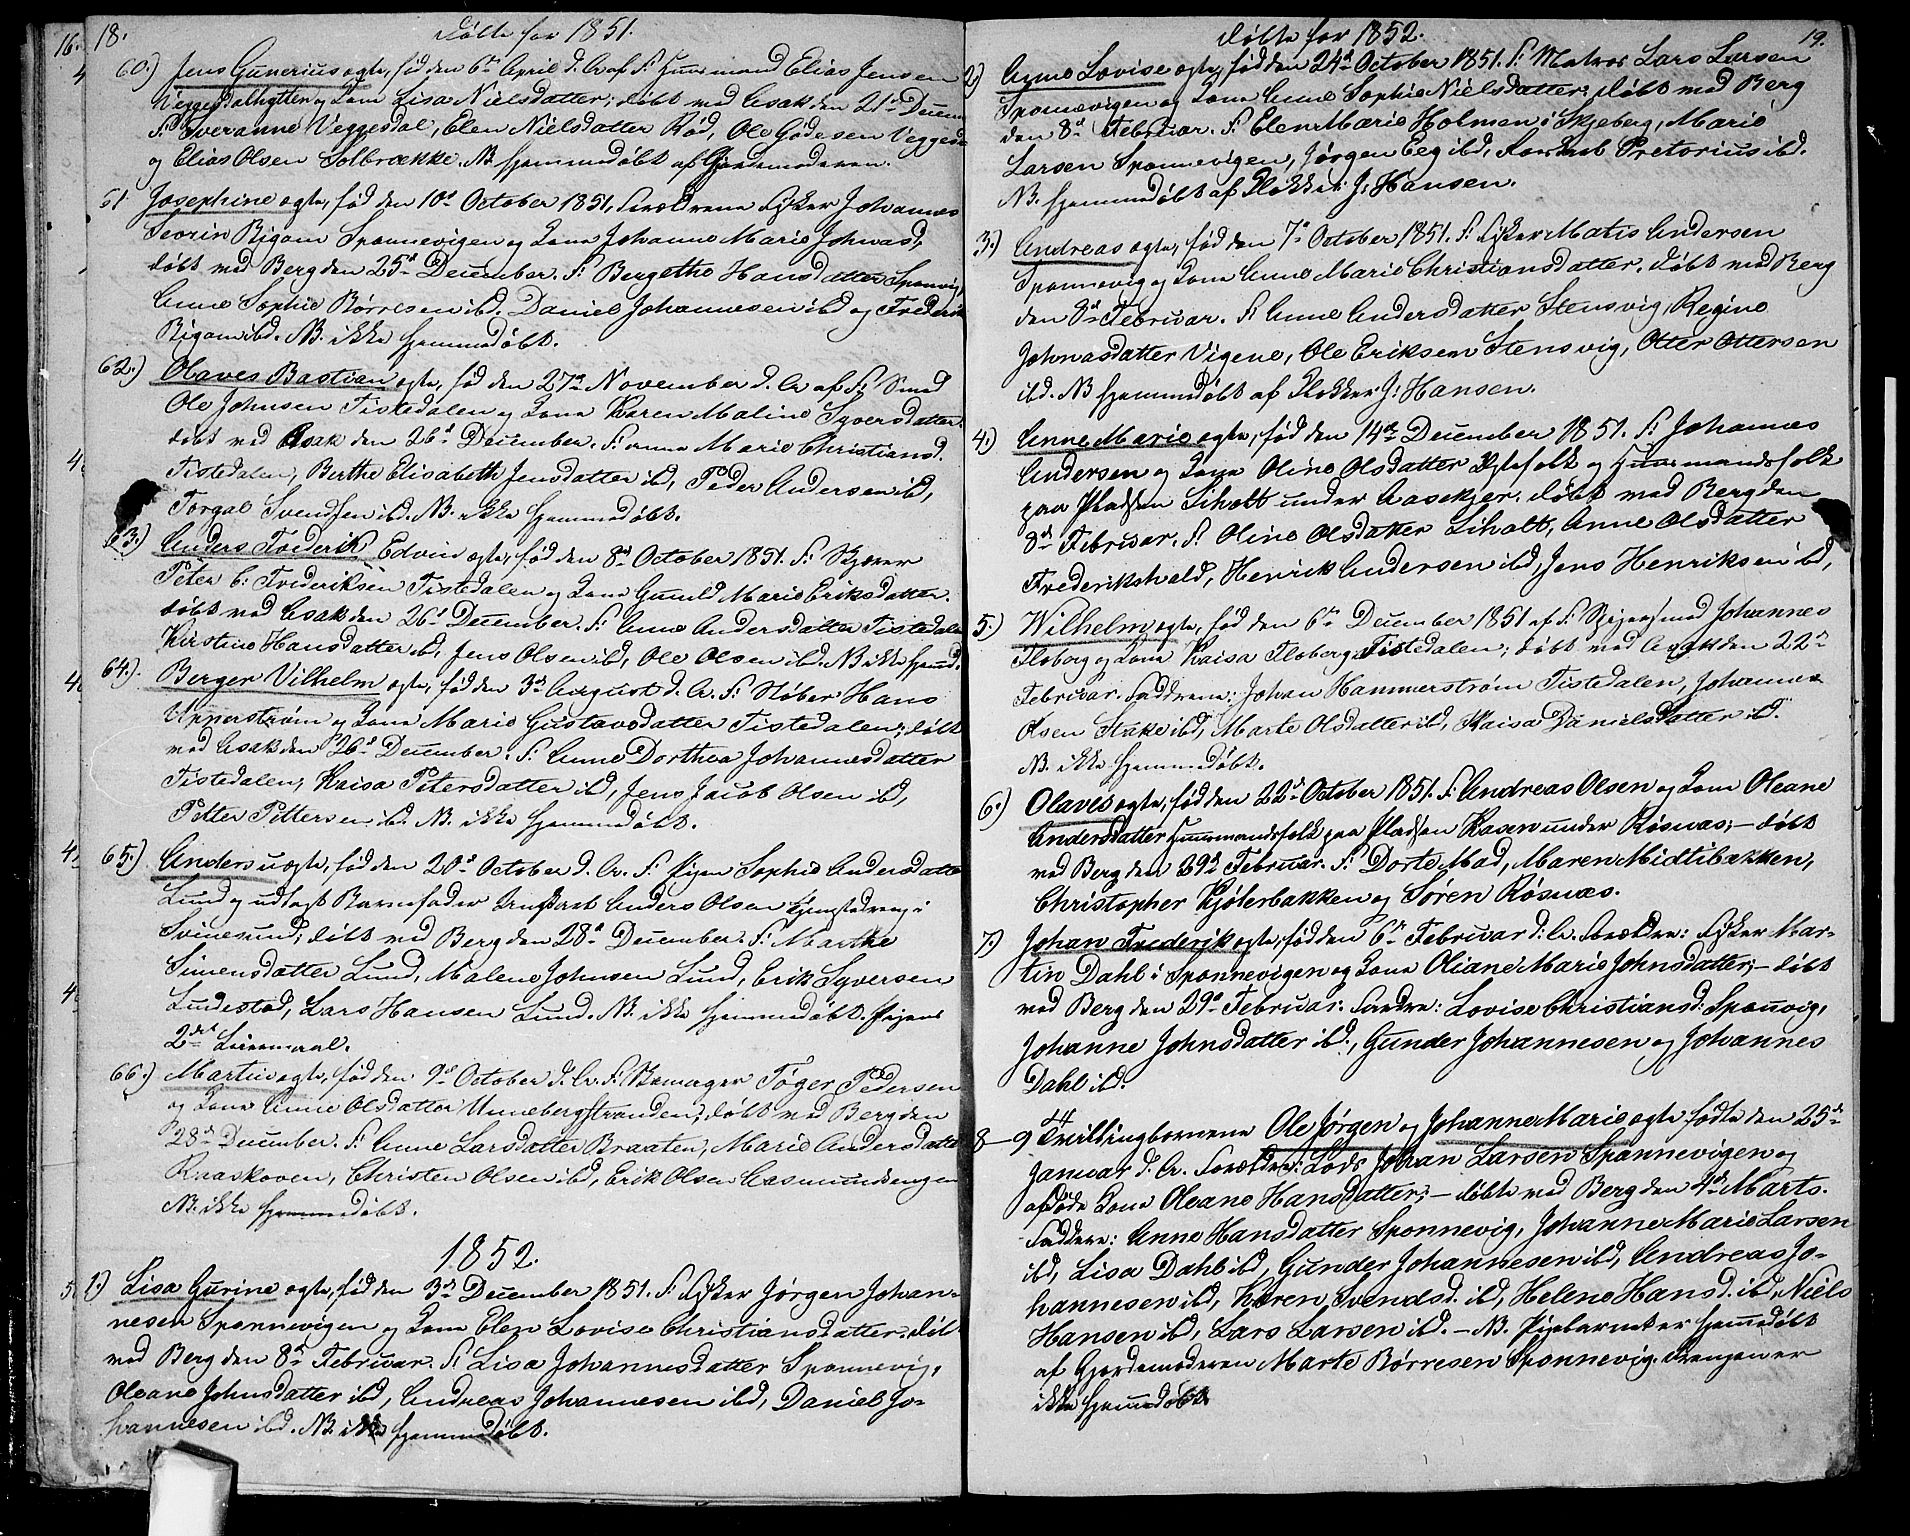 16. 18. Døbte for 1851.
60.) Jens Gunerius ægte, fød den 6te April d. A. af F. Huusmand Elias Jensen
Veggesdalhytten og Kone Lisa Nielsdatter; døbt ved Asak den 21de Decem
F. Sveranne Veggesdal, Elen Nielsdatter Rød, Ole Godesen Veggesda
og Elias Olsen Solbrække. NB. hjemmedøbt af Gjordemoderen.
61 Josephine ægte, fød den 10de October 1851, Forældrene Fisker Johannes
Bigom Sponnevigen og Kone Johanne Marie Johnasd,
døbt ved Berg den 25de December. F. Bergethe Hansdatter Sponvig,
Anne Sophie Børresen ibd. Daniel Johannesen ibd og Frederik
Bigom ibd. NB. ikke hjemmedøbt.
62.) Olaves Bastian ægte, fød den 27de November d. A. af F. Smed
Ole Johnsen Tistedalen og Kone Karen Maline Syversdatter.
døbt ved Asak den 26de December. F. Anne Marie Christiansd.
Tistedalen, Berthe Elisabeth Jensdatter ibd, Peder Andersen ibd,
Torgal Svendsen ibd. NB. ikke hjemmedøbt.
63.) Anders Frederik Edvin ægte, fød den 8de October 1851. F.
Peter C: Frederiksen Tistedalen og Kone Gunild Marie Eriksdatter.
døbt ved Asak den 26de December. F. Anne Andersdatter Tistedalen
Kirstine Hansdatter ibd, Jens Olsen ibd, Ole Olsen ibd. NB ikke hjemd.
64.) Berger Vilhelm ægte, fød den 3de August d. A. F. Støber Hans
Upperstrøm og Kone Marie Gustavsdatter Tistedalen; døbt
ved Asak den 26de December. F. Anne Dorthea Johannesdatter
Tistedalen, Kaisa Petersdatter ibd, Jens Jacob Olsen ibd,
Petter Pettersen ibd. NB. ikke hjemmedøbt.
65.) Anders uægte, fød den 20de October d. A. F. Pigen Sophie Andersdatter
Lund og udlagt Barnefader Anders Olsen i
Svinesund; døbt ved Berg den 28de December. F. Marthe
Simensdatter Lund, Malene Johnsen Lund, Erik Syversen
Ludestad, Lars Hansen Lund. NB. ikke hjemmedøbt. Pigens
2det Leiermaal.
66.) Martin ægte, fød den 9de October d. A. F. Tøger Pedersen
og Kone Anne Olsdatter Unnebergstranden; døbt ved Berg den
28de December. F. Anne Larsdatter Braaten, Marie Andersdatter
Knaskoven, Christen Olsen ibd, Erik Olsen Aasmundengen
NB. ikke hjemmedøbt.
1852.
1) Lisa Gurine ægte, fød den 3de December 1851. F. Fisker Jørgen Johan-
nesen Sponnevigen og Kone Elen Lovise Christiansdatter. døbt
ved Berg den 8de Februar. F. Lisa Johannesdatter Sponnevig,
Oleane Johnsdatter ibd, Andreas Johannesen ibd, Daniel Jo-
hannesen ibd. NB. ikke hjemmedøbt.
Døbte for 1852. 19.
2) Anne Lovise ægte, fød den 24de October 1851. F. Matros Lars Larsen
Sponnevigen og Kone Anne Sophie Nielsdatter. døbt ved Berg
den 8de Februar. F. Elen Marie Holmen i Skjeberg, Marie
Larsen Sponnevigen, Jørgen Eeg ibd, Pretorius ibd.
NB. hjemmedøbt af Klokker J. Hansen.
3.) Andreas ægte, fød den 7de October 1851. F. Fisker Matis Andersen
Sponnevig og Kone Anne Marie Christiansdatter. døbt ved Berg
den 8de Februar. F. Anne Andersdatter Stensvig, Regine
Johnasdatter Vigene, Ole Eriksen Stensvig, Otter Ottersen
ibd. NB hjemmedøbt af Klokker J. Hansen.
4.) Anne Marie ægte, fød den 14de December 1851. F. Johannes
Andersen og Kone Oline Olsdatter Ægtefolk og Huusmandsfolk
paa Pladsen Liholt under Aasekjer. døbt ved Berg den
8de Februar. F. Oline Olsdatter Liholt, Anne Olsdatter
Frederikshald, Henrik Andersen ibd, Jens Henriksen ibd,
5.) Wilhelm ægte, fød den 6te December 1851 af F. Johannes
Floberg og Kone Kaisa Floberg Tistedalen; døbt ved Asak den 22de
Februar. Fadderne: Johan Hammerstrøm Tistedalen, Johannes
Olsen Stake ibd, Marte Olsdatter ibd, Kaisa Danielsdatter ibd.
NB. ikke hjemmedøbt.
6.) Olaves ægte, fød den 22de October 1851. F. Andreas Olsen og Kone Oleane
Andersdatter Huusmandsfolk paa Pladsen Kasen under Røsnæs; — døbt
ved Berg den 29de Februar. F. Dorte Mad, Maren Midtibakken,
Christopher Kjølerbakken og Søren Røsnæs.
7.) Johan Frederik ægte, fød den 6te Februar d. A. Forældre: Fisker Mar-
tin Dahl i Sponnevigen og Kone Oliane Marie Johnsdatter; — døbt
ved Berg den 29de Februar. Faddre: Lovise Christiansd: Sponvig,
Johanne Johnsdatter ibd., Gunder Johannesen og Johannes
Dahl ibd.
8–9 Tvillingbørnene Ole Jørgen og Johanne Marie ægte fødte den 25de
Januar d. A. Forældre: Lods Johan Larsen Sponnevigen og
afdøde Kone Oleane Hansdatter; — døbte ved Berg den 4de Marts.
Faddere: Anne Hansdatter Sponnevig, Johanne Marie Larsen
ibd, Lisa Dahl ibd, Gunder Johannesen ibd, Andreas Jo-
hannesen ibd, Karen Svendsd. ibd, Helene Hansd. ibd, Niels
Hansen ibd, Lars Larsen ibd. — NB. Pigebarnet er hjemmedøbt
af Gjordemoderen Marte Børresen Sponnevig. Drengen er
ikke hjemmedøbt